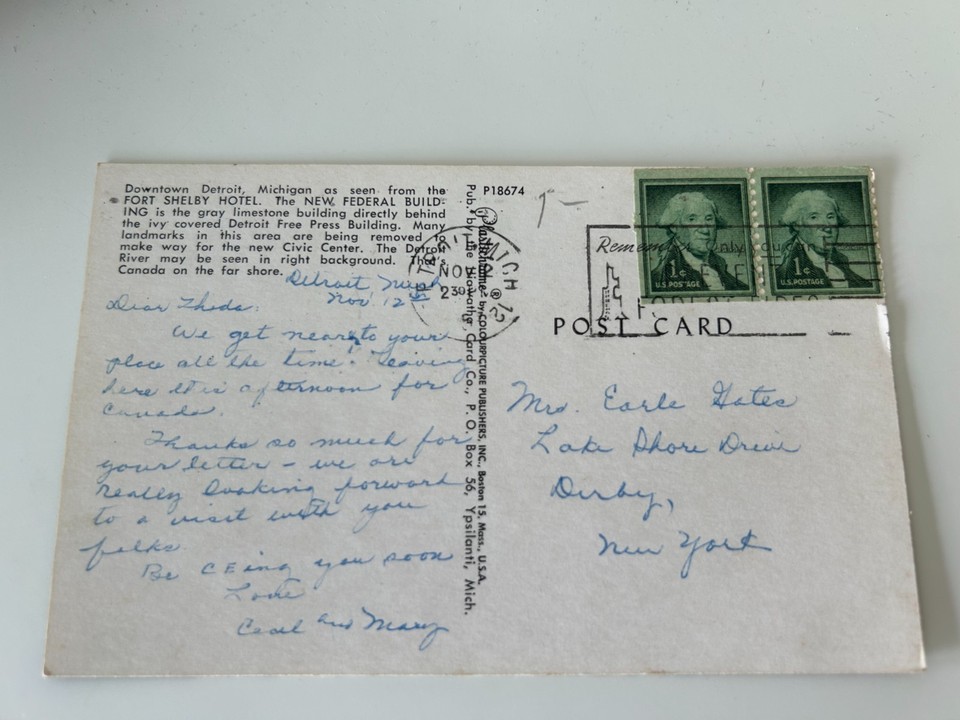 Downtown Detroit, Michigan as seen from the
FORT SHELBY HOTEL. The NEW FEDERAL BUILD-
ING is the gray limestone building directly behind
the ivy covered Detroit Free Press Building. Many
landmarks in this area are being removed to
make way for the new Civic Center. The Detroit
River may be seen in right background. That's
Canada on the far shore.
Detroit Mich
Nov. 12
Dear Theda:
We get near to your
place all the time. Leaving
here this afternoon for
Canada.
Thanks so much for
your letter – we are
really looking forward
to a visit with you
folks.
Be CEing you soon
Love
Cecil and Mary
Pub. by the Hiawatha Card Co., P. O. Box 56, Ypsilanti, Mich.
Plastichrome ® by COLOURPICTURE PUBLISHERS, INC., Boston 15, Mass., U.S.A.
P18674
DETROIT MICH
NOV 12
Remember Only you can
1¢
U.S. POSTAGE
1¢
U.S. POSTAGE
POST CARD
Mrs. Earle Gates
Lake Shore Drive
Derby,
New York